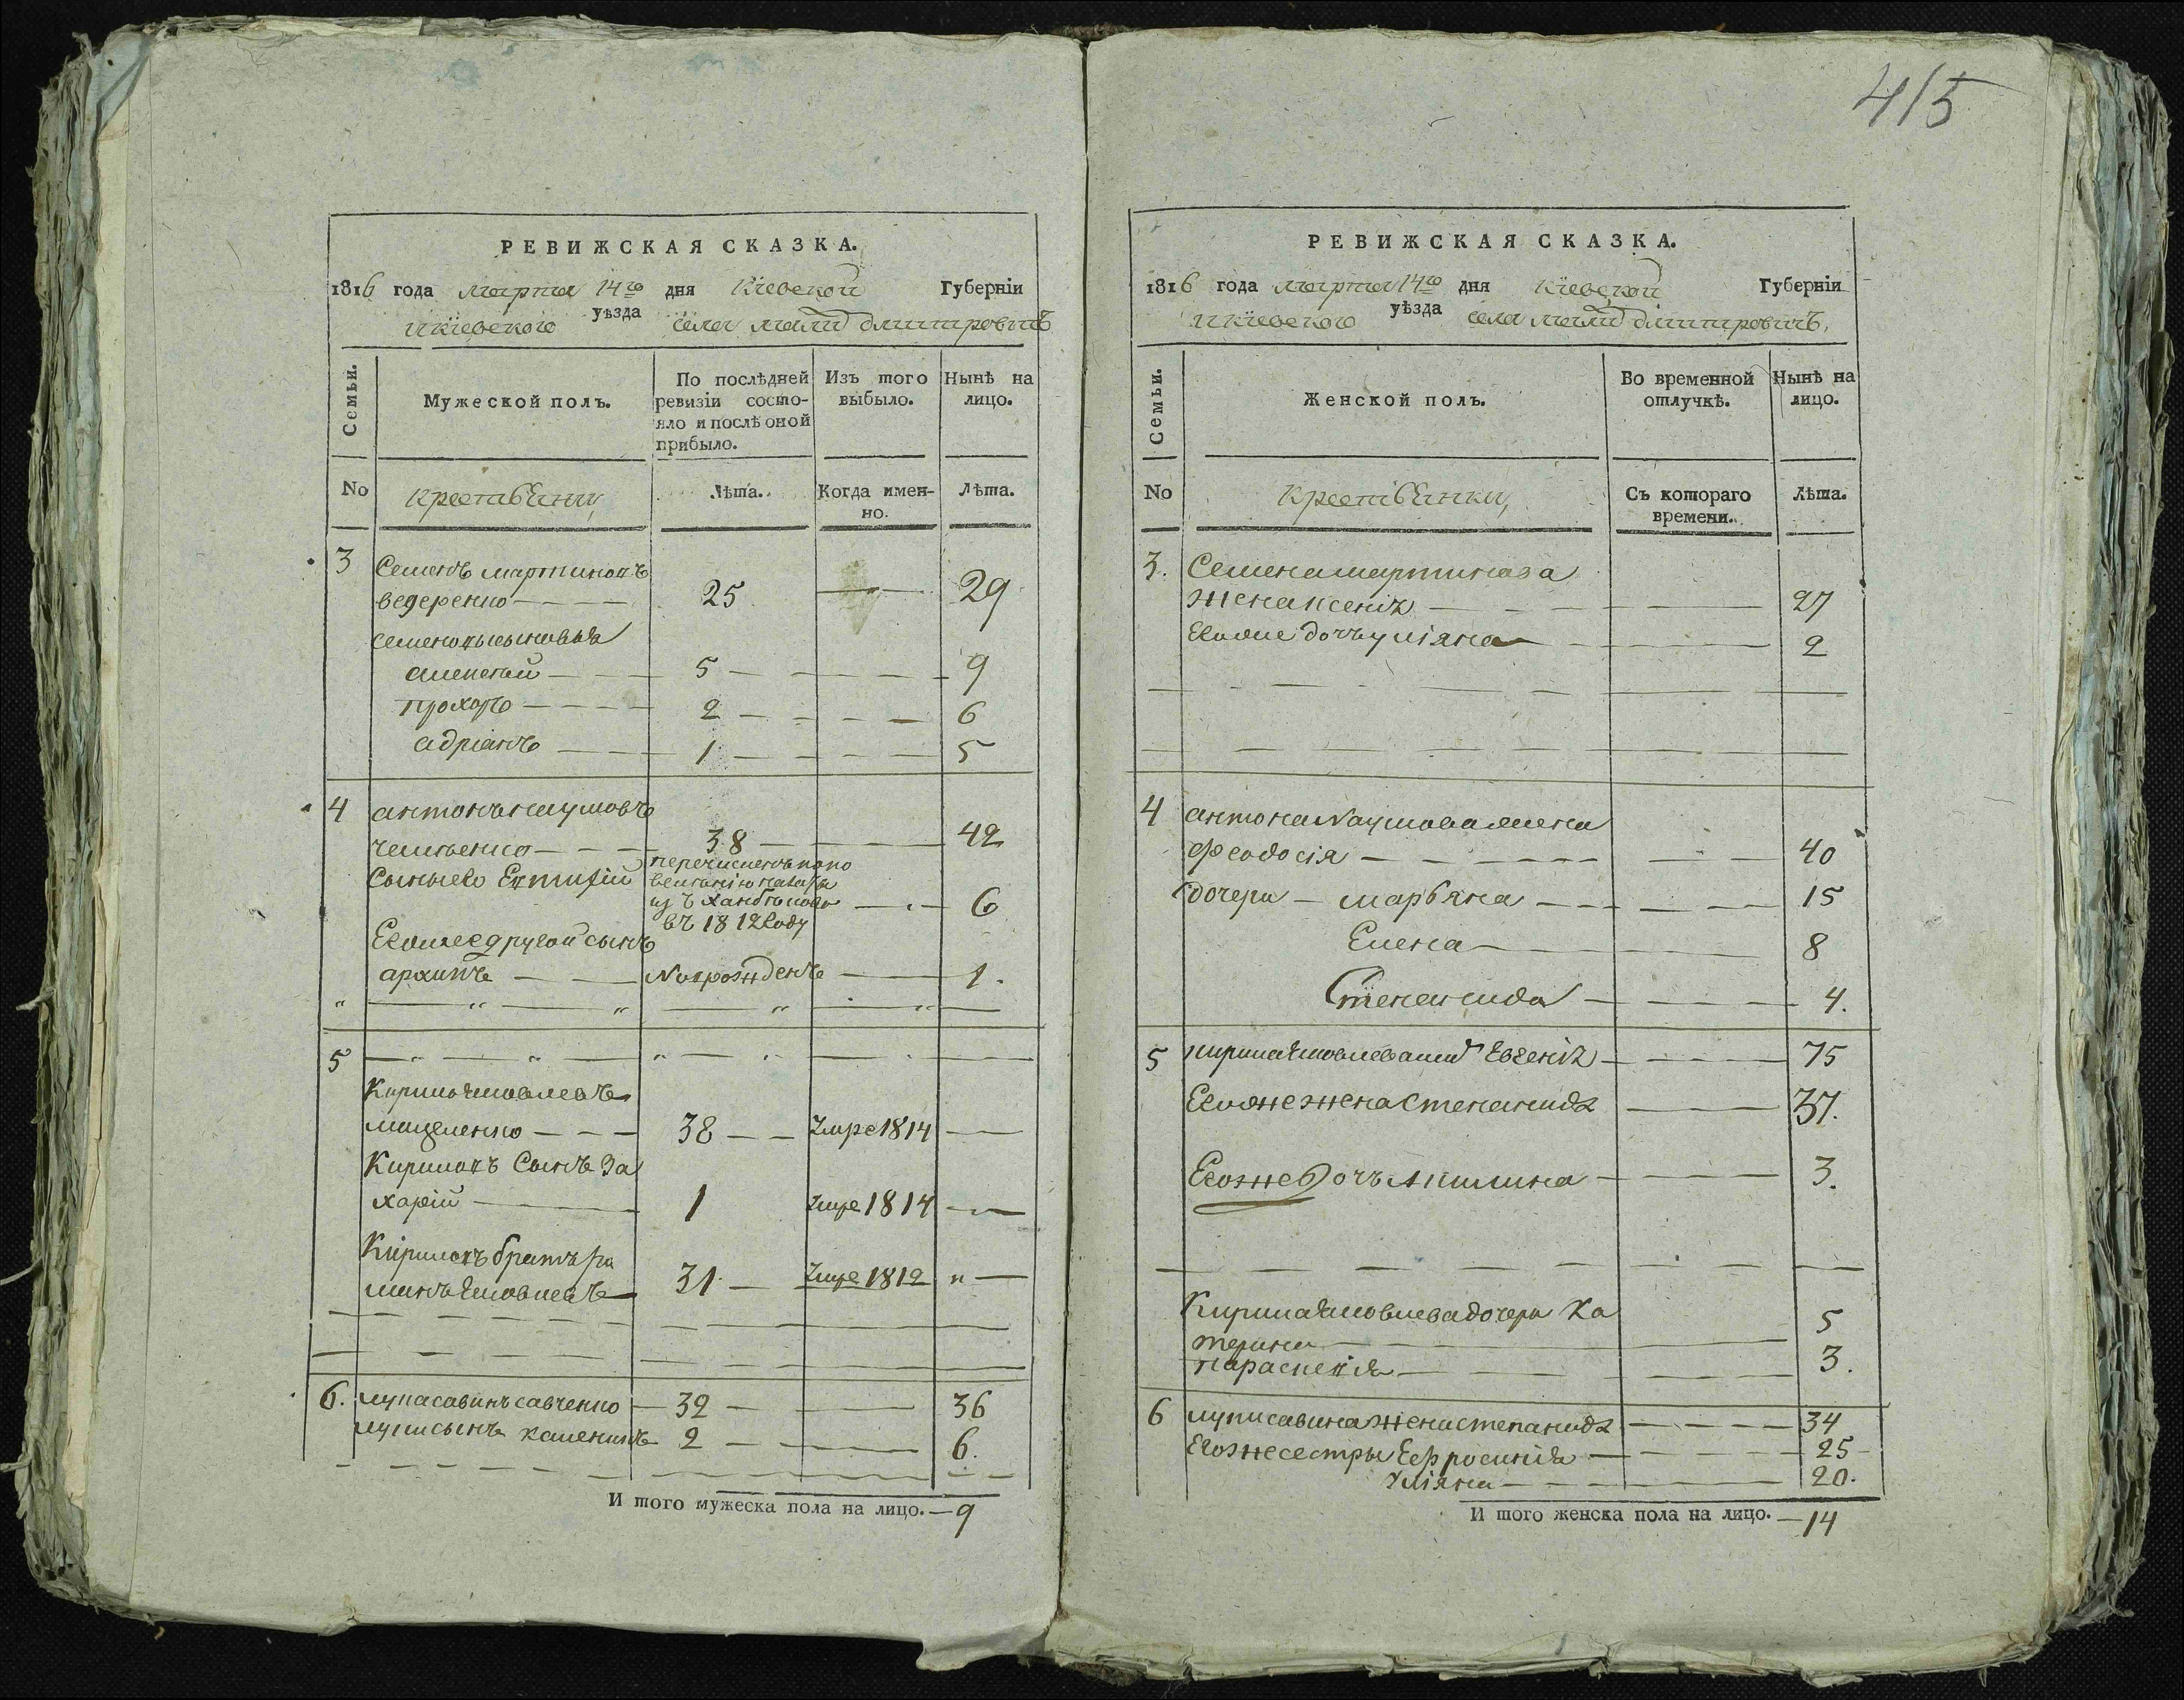 415
РЕВИЖСКАЯ СКАЗКА.
1816 года марта 14го дня Кіевской Губерніи
икіевского уѣзда села малы дмитровичъ
Семьи.
Мужеской полъ.
По послѣдней ревизіи состо-
яло и послѣ оной
прибыло.
Изъ того выбыло.
Нынѣ на лицо.
No
крестьѣни,
Лѣта.
Когда имен-
но.
Лѣта.
3 Семенъ мартиновъ
ведеренко 25 — 29
семеновы сыновья
алексѣй 5 — 9
прохоръ 2 — 6
адріанъ 1 — 5
4 антонъ наумовъ
38 — 42
Сынъ его Евтифій перечисленъ по по
изъ
въ 1812 году — 6
Егоже другой сынъ
архипъ Новрожденъ — 1.
5
Кирило Яковлевъ
мацеленко 38 — Умре 1814 —
Кириловъ Сынъ За
харій 1 Умре 1814 —
Кириловъ братъ Ро
манъ Яковлевъ 31 — Умре 1812 —
6. лупа савинъ савченко 32 — 36
лупи сынъ каленикъ 2 — 6.
И того мужеска пола на лицо. — 9
РЕВИЖСКАЯ СКАЗКА.
1816 года марта 14го дня Кіевской Губерніи
икіевского уѣзда села малы дмитровичъ,
Семьи.
Женской полъ.
Во временной отлучкѣ.
Нынѣ на лицо.
No
Крестьѣнки,
Съ котораго
времени.
Лѣта.
3. Семена мартинова
жена ксенія 27
Егоже дочь уліяна 2
4 антона Наумова жена
Феодосія 40
дочери — марьяна 15
Елена 8
Степанида 4.
5 кирила Яковлева мат Евгенія 75
Егоже жена степанида 37.
Егоже Дочъ Акилина 3.
Кирила Яковлева дочери Ка
терина 5
параскевія 3.
6 лупи савина жена степанида 34
Егоже сестры Ефросинія 25
Уліяна 20.
И того женска пола на лицо. — 14